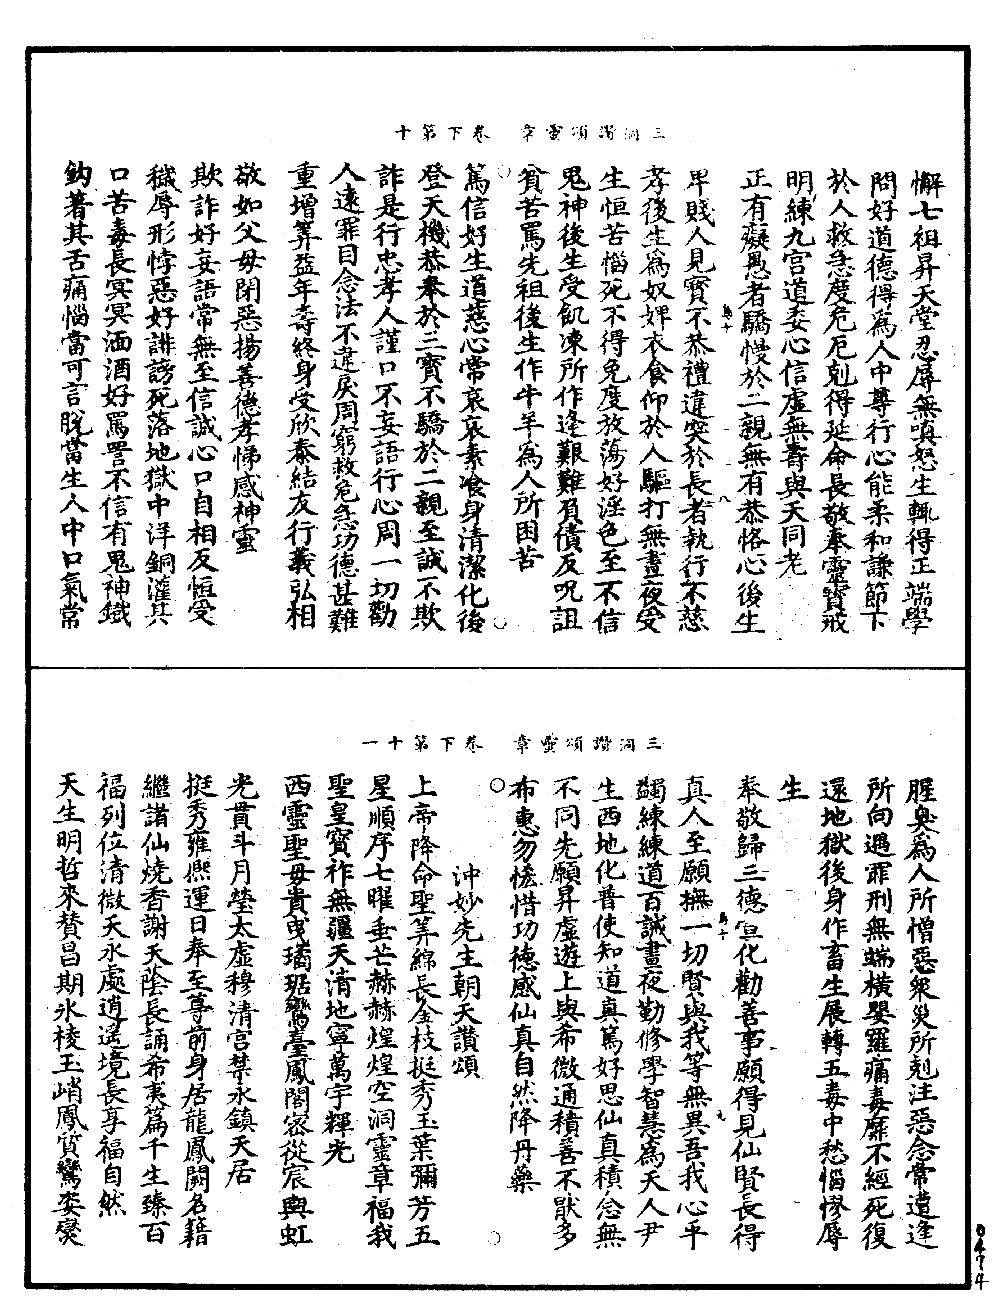 三洞讚頌靈章　卷下第十
懈七祖昇天堂忍辱無嗔怒生輒得正端學
問好道德得為人中尊行心能柔和謙節下
於人救急度危厄剋得延命長敬奉靈寶戒
明練九宮道委心信虛無壽與天同老
正有癡愚者驕慢於二親無有恭恪心後生
卑賤人見寶不恭禮違突於長者執行不慈
孝後生為奴婢衣食仰於人驅打無晝夜受
生恒苦惱死不得免度放蕩好淫色至不信
鬼神後生受飢凍所作逢艱難負債反呪詛
貧苦罵先祖後生作牛羊為人所困苦
篤信好生道慈心常哀哀素飡身清潔化後
登天機恭奉於三寶不驕於二親至誠不欺
詐是行忠孝人謹口不妄語行心周一切勸
人遠罪目念法不違戾周窮救危急功德甚難
重增筭益年壽終身受欣泰結友行義弘相
敬如父母閉惡揚善德孝悌感神靈
欺詐好妄語常無至信誠心口自相反恒受
穢辱形悖惡好誹謗死落地獄中洋銅灌其
口苦毒長冥冥酒酒好罵詈不信有鬼神鐵
鈎著其舌痛惱當可言脫當生人中口氣常
三洞讚頌靈章　卷下第十一
腥臭為人所憎惡衆災所剋注惡念常遭逢
所向遇罪刑無端橫嬰羅痛毒靡不經死復
還地獄後身作畜生展轉五毒中愁惱慘辱
生
奉敬歸三德宣化勸善事願得見仙賢長得
真人至願撫一切賢與我等無異吾我心平
蠲練練道百誠晝夜勤修學智慧為天人尹
生西地化普使知道真篤好思仙真積念無
不同先願昇虛遊上與希微通積善不厭多
布惠勿悋惜功德感仙真自然降丹藥
沖妙先生朝天讚頌
上帝降命聖筭綿長金枝挺秀玉葉彌芳五
星順序七曜垂芒赫赫煌煌空洞靈章福我
聖皇寶祚無疆天清地寧萬宇輝光
西靈聖母貴曳璚琚鸞臺鳳閣密從宸輿虹
光貫斗月瑩太虛穆清宮禁永鎮天居
挺秀雍熙運日奉至尊前身居龍鳳闕名籍
繼諸仙燒香謝天蔭長誦希夷篇千生臻百
福列位清微天永處逍遙境長享福自然
天生明哲來賛昌期氷稜玉峭鳳質鸞姿燮
0474